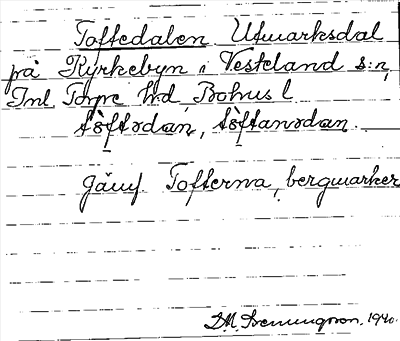 Toftedalen Utmarksdal
på Kyrkebyn i Vesteland s:n,
Inl Torpe hd, Bohus l
tòftədαn, tòftanədαn.
Jämf. Tofterna, bergmarker
D.M. Bremungson. 1940.